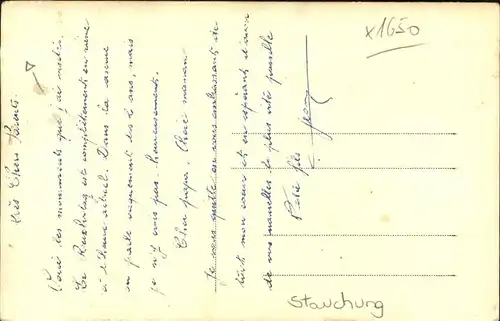 Très Chers Parents.
Voici les monuments que j'ai
Le est complètement en ruine
à l'heure actuel. Dans la
on parle vaguement des 2 ans, mais
je n'y crois pas. heureusement.
Cher papa. Chère maman
Je vous quitte en vous embrassant de
tout mon cœur et en espérant d'avoir
de vos nouvelles le plus vite possible
Votre fils
x1650
Stauchung